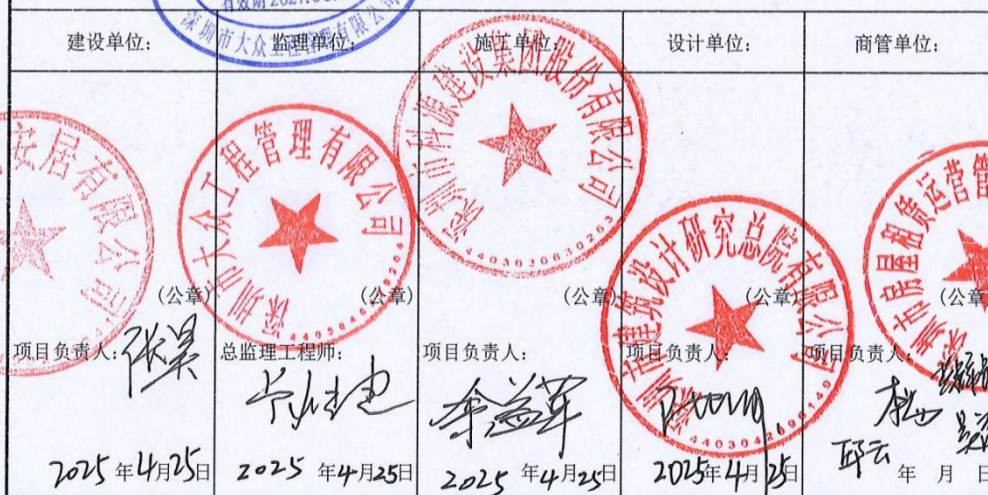 有效期2027.0
深圳市大众工程管理有限公司
建设单位: 监理单位: 施工单位: 设计单位: 商管单位:
安居有限公司
深圳市大众工程管理有限公司
建设集团股份有限公司
4403030630263
深圳市建筑设计研究总院有限公司
深圳市房屋租赁运营管
(公章) (公章) (公章) (公章) (公章
项目负责人: 张昊 总监理工程师: 项目负责人: 余益军 项目负责人: 项目负责人:
邱云
2025年4月25日 2025年4月25日 2025年4月25日 2025年4月25日 年 月 日